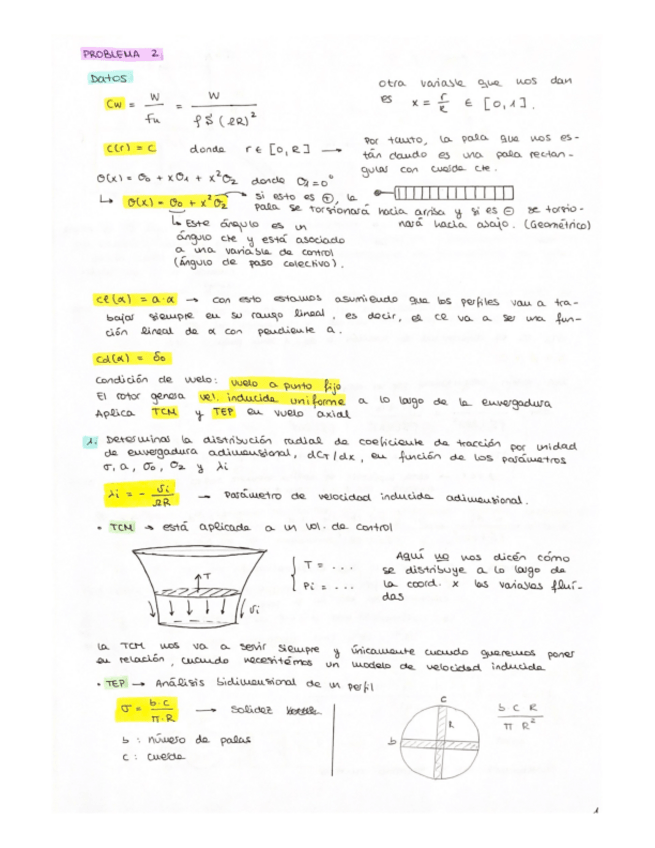 PROBLEMA 2
Datos
Cw = W / fu = W / ρS(ΩR)²
otra variable que nos dan
es x = r/R ∈ [0,1].
c(r) = c donde r ∈ [0,R] →
Por tanto, la pala que nos es-
tán dando es una pala rectan-
gular con cuerda cte.
θ(x) = θ0 + xθ1 + x²θ2 donde θ1 = 0°
↳ θ(x) = θ0 + x²θ2
→ si esto es ⊕, la
pala se torsionará hacia arriba y si es ⊖ se torsio-
nará hacia abajo. (Geométrico)
↳ Este ángulo es un
ángulo cte y está asociado
a una variable de control
(ángulo de paso colectivo).
cl(α) = a·α → con esto estamos asumiendo que los perfiles van a tra-
bajar siempre en su rango lineal, es decir, el cl va a ser una fun-
ción lineal de α con pendiente a.
cd(α) = δ0
Condición de vuelo: vuelo a punto fijo
El rotor genera vel. inducida uniforme a lo largo de la envergadura
Aplica TCM y TEP en vuelo axial
1. Determinar la distribución radial de coeficiente de tracción por unidad
de envergadura adimensional, dCT/dx, en función de los parámetros
σ, a, θ0, θ2 y λi
λi = - vi / ΩR → Parámetro de velocidad inducida adimensional.
• TCM → está aplicada a un vol. de control
T
vi
T = ...
Pi = ...
Aquí no nos dicen cómo
se distribuye a lo largo de
la coord. x las variables fluí-
das
La TCM nos va a servir siempre y únicamente cuando queremos poner
en relación, cuando necesitemos un modelo de velocidad inducida
• TEP → Análisis bidimensional de un perfil
σ = b·c / π·R → Solidez
b : número de palas
c : cuerda
c
R
b
b c R / π R²
1